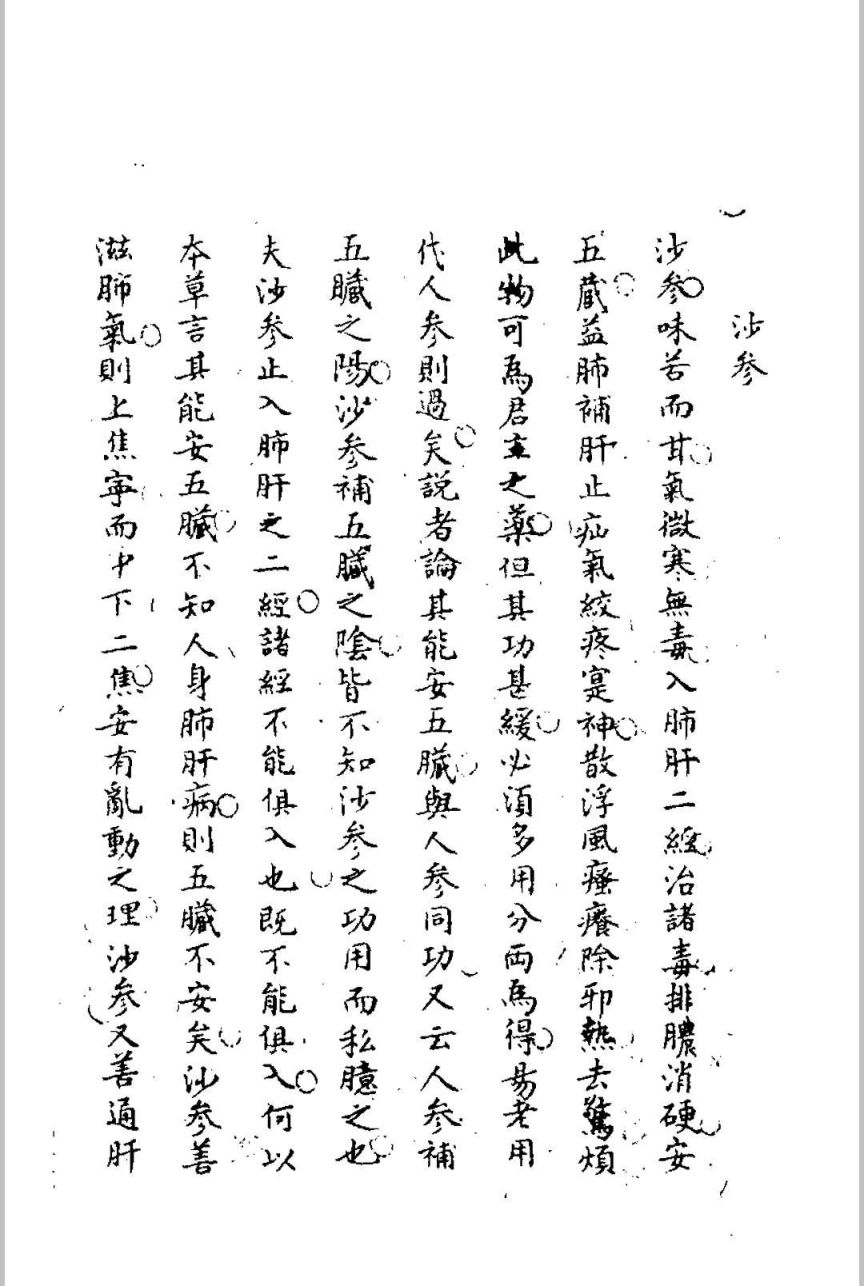 沙參
沙參味苦而甘氣微寒無毒入肺肝二經治諸毒排膿消硬安
五蔵益肺補肝止疝氣絞疼寔神散浮風瘙癢除邪熱去驚煩
此物可爲君主之藥但其功甚緩必須多用分両爲得易老用
代人參則過矣説者論其能安五臓與人參同功又云人參補
五臓之陽沙參補五臓之陰皆不知沙參之功用而私臆之也
夫沙參止入肺肝之二經諸經不能俱入也既不能俱入何以
本草言其能安五臓不知人身肺肝病則五臓不安矣沙參善
滋肺氣則上焦寧而中下二焦安有亂動之理沙參又善通肝